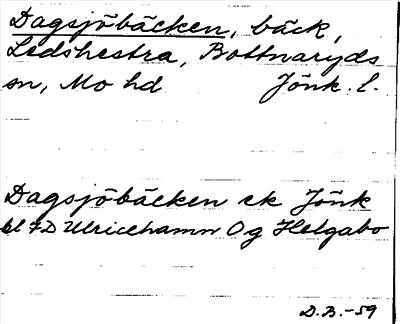 Dagsjöbäcken, bäck,
Ledshestra, Bottnaryds
sn, Mo hd Jönk. l.
Dagsjöbäcken ek Jönk
bl 7D Ulricehamn Og Helgabo
D.B.-59